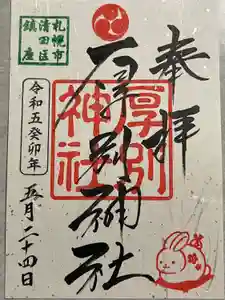 奉拝
厚別
神社
別
社
札幌市
清田区
鎮座
令和五癸卯年
五月二十四日